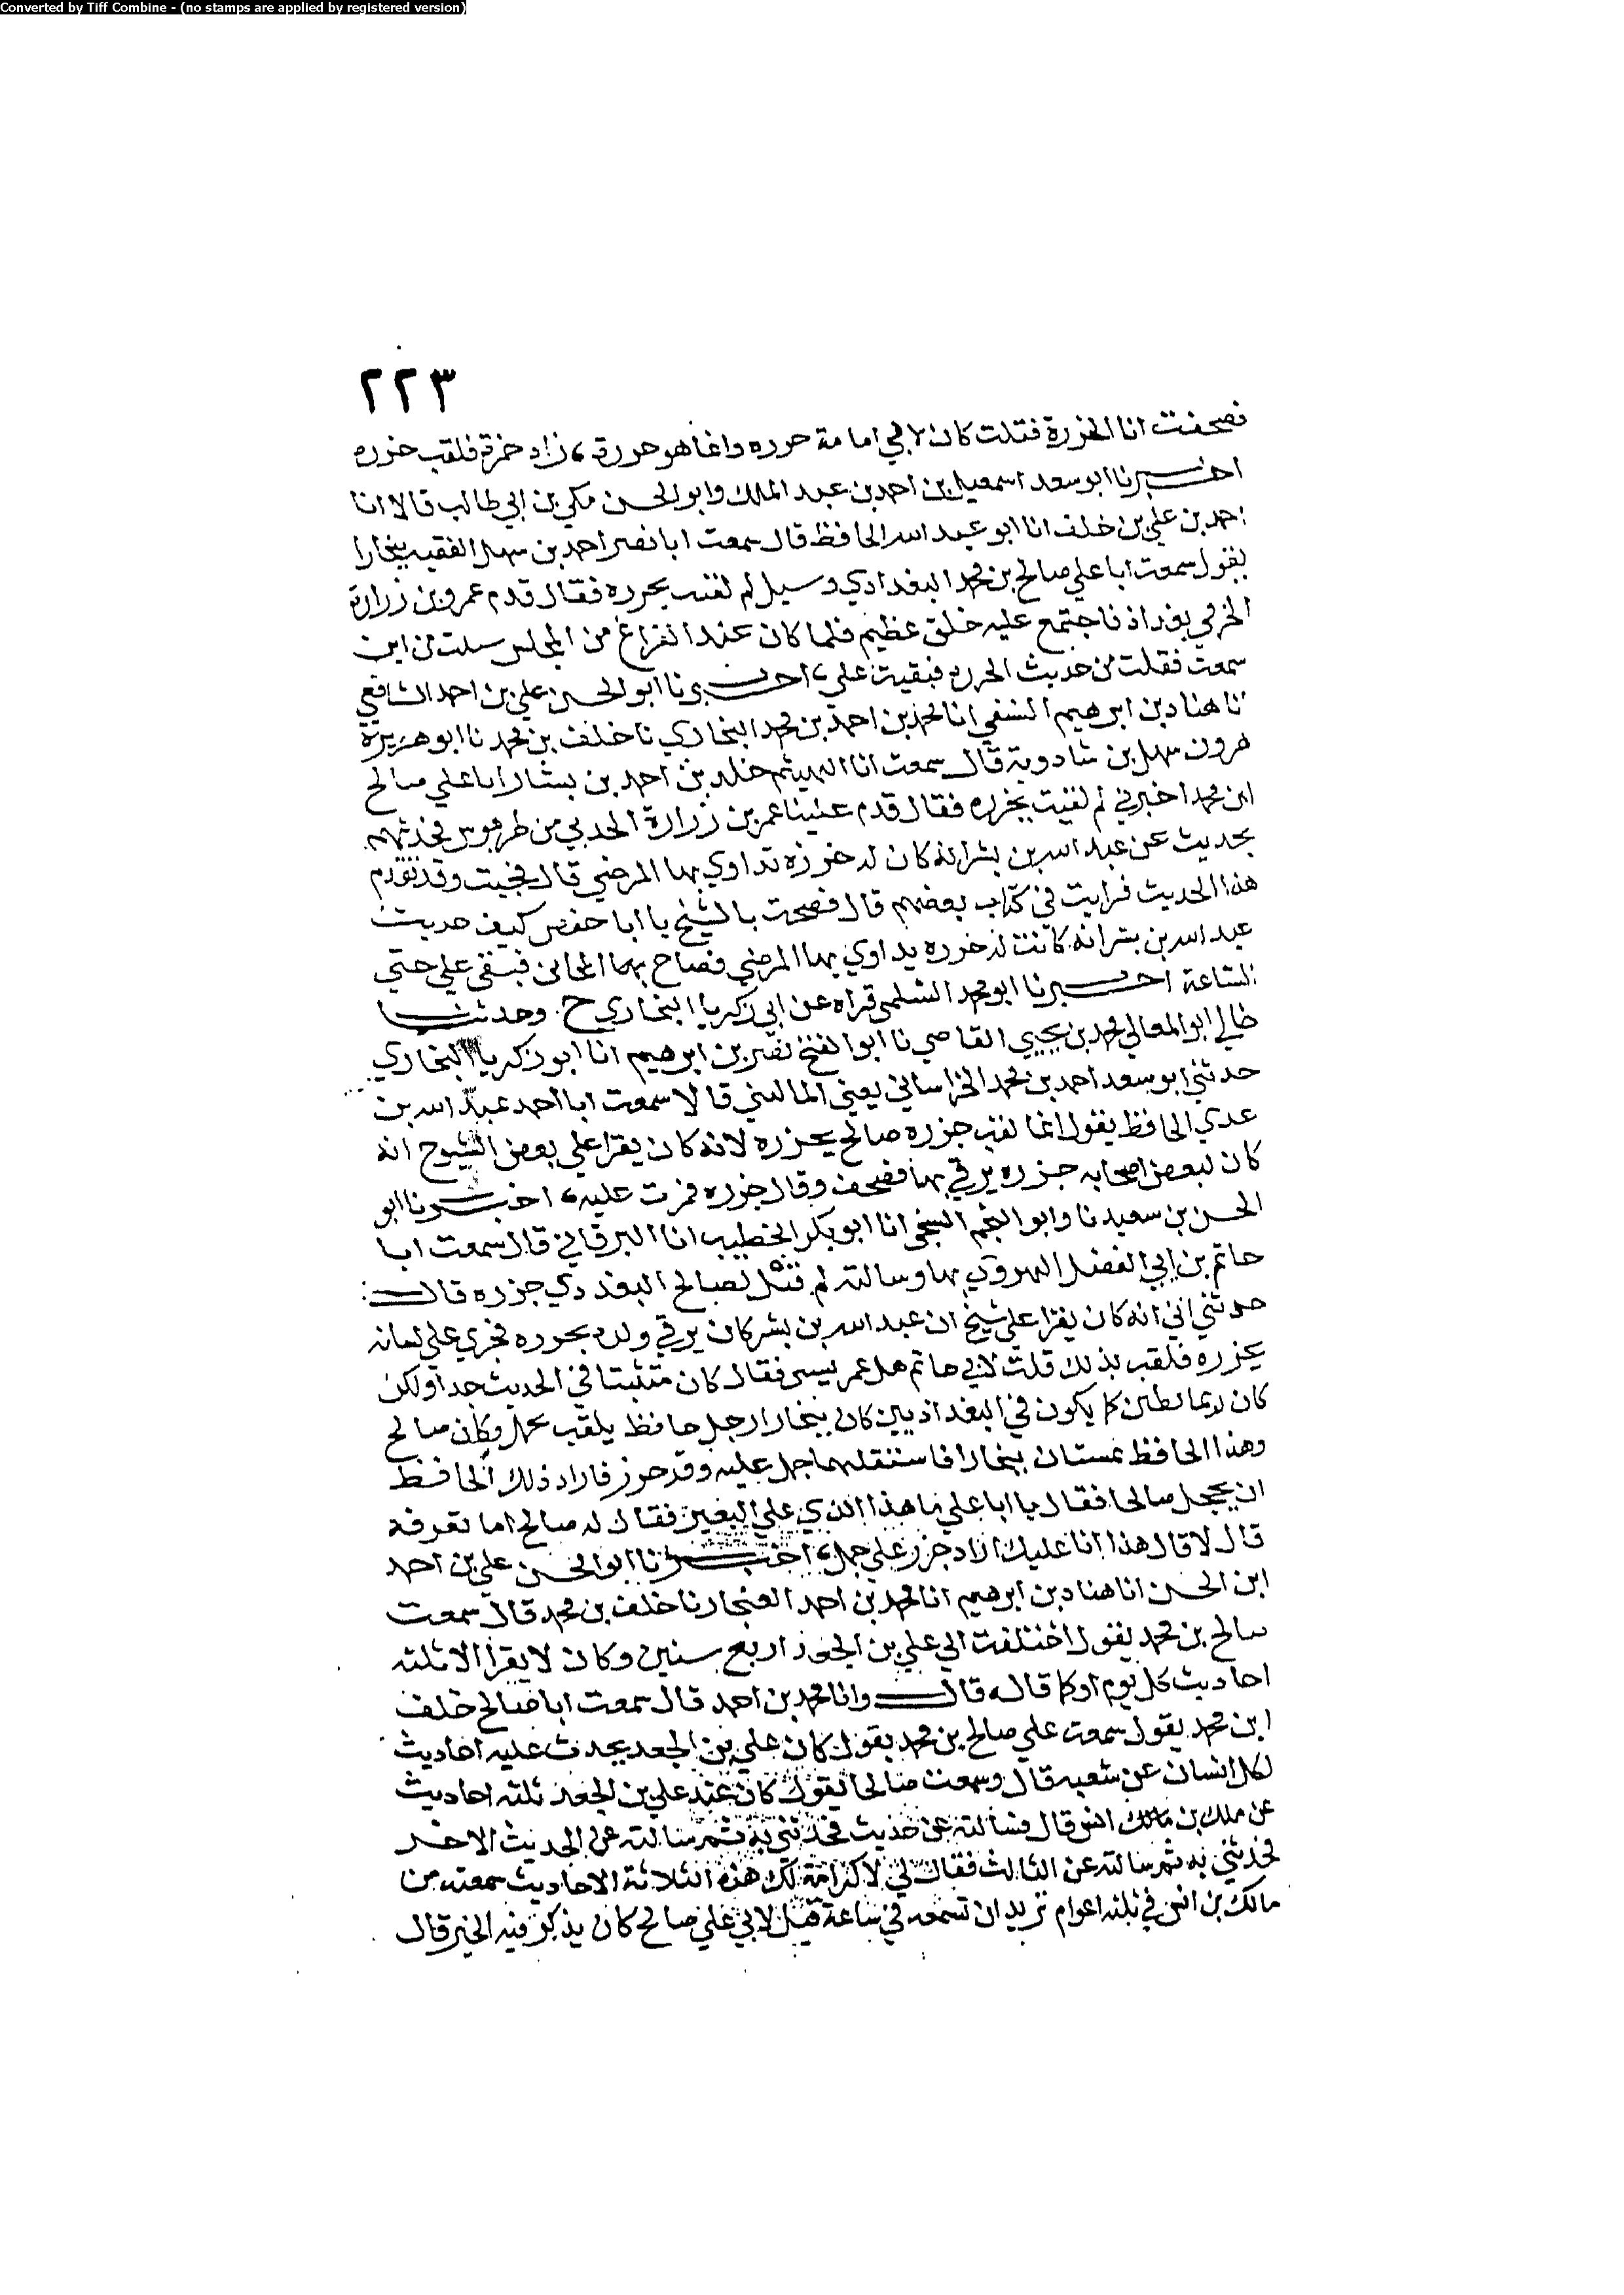 Converted by Tiff Combine - (no stamps are applied by registered version)
٢٢٣
فصحفت انا الخررة فقلت كان لابي امامة حرره وانما هو حررة، زاد حمزة فلقب خزره
اخبرنا ابو سعد اسمعيل بن احمد بن عبد الملك وابو الحسن مكي بن ابي طالب قالا انا
احمد بن علي بن خلف انا ابو عبد الله الحافظ قال سمعت ابا نصر احمد بن سهل الفقيه ببخارا
يقول سمعت ابا علي صالح بن محمد البغدادي وسيل لم لقبت بجرره فقال قدم عمرو بن زرارة
الحرفي بغداذ فاجتمع عليه خلق عظيم فلما كان عند الفراغ من المجلس سيلت من اين
سمعت فقلت من حديث الجرره فبقيت علي، اخبرنا ابو الحسن علي بن احمد الشافعي
نا هناد بن ابرهيم النسفي انا محمد بن احمد بن محمد البخاري نا خلف بن محمد نا ابو هريرة
هرون سهل بن شادوية قال سمعت انا الهيثم خلد بن احمد بن بستار ابا علي صالح
ابن محمد اخبرني لم لقبت بخرره فقال قدم علينا عمر بن زرارة الحدبي من طرسوس فحدثهم
بحديث عن عبد الله بن بشر انه كان له خرزه تداوي بها المرضي قال فجيت وقد تقدم
هذا الحديث فرايت في كتاب بعضهم قال فصحت بالشيخ يا ابا حفص كيف حديث
عبد الله بن بشر انه كانت له خرره يداوي بها المرضي فصاح بها المجان فبقي علي حتي
الساعة اخبرنا ابو محمد السلمي قراه عن ابي زكريا البخاري ح. وحدثنا
خالي ابو المعالي محمد بن يحيي القاضي نا ابو الفتح نصر بن ابرهيم انا ابو زكريا البخاري
حدثني ابو سعد احمد بن محمد الخراساني يعني الماليني قالا سمعت ابا احمد عبد الله بن
عدي الحافظ يقول انما لقب جزره صالح بجزره لانه كان يقرا علي بعض الشيوخ انه
كان لبعض اصحابه جزره يرقي بها فصحف وقال جزره فمرت عليه، اخبرنا ابو
الحسن بن سعيد نا وابو النجم الشيخي انا ابو بكر الخطيب انا البرقاني قال سمعت ابا
حاتم بن ابي الفضل الهروي بها وسالته لم قيل لصالح البغددي جزره قال
حدثني ابي انه كان يقرا علي شيخ ان عبد الله بن بشر كان يرقي ولده بحرره فجري علي لسانه
بجزره فلقب بذلك قلت لابي حاتم هل عمر يسي فقال كان متثبتا في الحديث جدا ولكن
كان ربما يطنز كما يكون في البغداذيين كان ببخارا رجل حافظ يلقب بحمل وكان صالح
وهذا الحافظ يمشيان ببخارا فاستقبلهما جمل عليه وقر جزر فاراد ذلك الحافظ
ان يخجل صالحا فقال يا ابا علي ما هذا الذي علي البعير فقال له صالح اما تعرفه
قال لا قال هذا انا عليك اراد جزر علي جمل، اخبرنا ابو الحسن علي بن احمد
ابن الحسن انا هناد بن ابرهيم انا محمد بن احمد الغنجار نا خلف بن محمد قال سمعت
صالح بن محمد يقول اختلفت الي علي بن الجعد اربع سنين وكان لا يقرا الا ثلثه
احاديث كل يوم او كما قاله قال وانا محمد بن احمد قال سمعت ابا صالح خلف
ابن محمد يقول سمعت علي صالح بن محمد يقول كان علي بن الجعد يحدث عليه احاديث
لكل انسان عن شعبه قال وسمعت صالحا يقول كان عند علي بن الجعد ثلثه احاديث
عن ملك بن مالك انس قال فسالته عن حديث فحدثني به ثم سالته عن الحديث الاخر
فحدثني به ثم سالته عن الثالث فقال لي لا كرامة لك هذه الثلاثة الاحاديث سمعته من
مالك بن انس في ثلثه اعوام تريد ان تسمعه في ساعة قيل لابي علي صالح كان يذكر فيه الخير قال